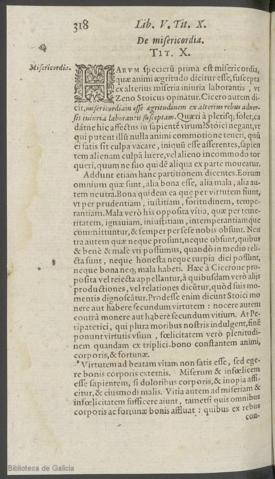 318 Lib. V. Tit. X.
De misericordia.
TIT. X.
Misericordia.
HARVM specierũ prima est misericordia,
quæ animi ægritudo dicitur esse, suscepta
ex alterius miseria iniuria laborantis, vt
Zeno Stoicus opinatur. Cicero autem di-
cit, misericordiam esse ægritudinem ex alterius rebus aduer-
sis iniuria laborantis susceptam. Quæri à plerisq; solet, ca
dát ne hic affectus in sapientē virum? Stoici negāt, vt
qui putent illū nulla animi commotione teneri, quā
ei satis sit culpa vacare, iniquū esse asserentes, sapien
tem alienam culpā luere, vel alieno incommodo tor
queri, quum ne suo quidē aliqua ex parte moueatur.
Addunt etiam hanc partitionem dicentes. Eorum
omnium quæ sunt, alia bona esse, alia mala, alia au-
tem neutra. Bona quidem ea quæ per virtutem siunt,
vt per prudentiam, iustitiam, fortitudinem, tempe-
rantiam. Mala verò his opposita vitio, quæ per teme-
ritatem, ignauiam, iniustitiam, intemperantiamque
ommittuntur, & semper per sese nobis obsunt. Neu
tra autem quæ neque prosunt, neque obsunt, quibus
& benè & malè vti possumus, quandò in medio reli-
cta sunt, neque honesta neque turpia dici possunt,
neque bona neq; mala haberi. Hæc à Cicerone pro-
posita vel reiecta appellantur, à quibusdam verò alijs
productiones, vel relationes dicūtur, quòd suis mo-
mentis dignoscātur. Prodesse enim dicunt Stoici mo
uere aut habere secundum virtutem: nocere autem
contrà mouere aut habere secundum vitium. At Pe-
ripatetici, qui plura moribus nostris indulgent, finē
ponunt virtutis vsum, fœlicitatem verò plenitudi-
nem quandam ex triplici bono constantem animi,
corporis, & fortunæ.
Virtutem ad beatam vitam non satis esse, sed ege-
re bonis corporis externis. Miserum & infœlicem
esse sapientem, si doloribus corporis, & inopia affi-
citur, & eiusmodi malis. Vitia autem ad miseriam &
infœlicitatem sufficere aiunt, tametsi quis omnibus
corporis ac fortunæ bonis affluat: quibus ex rebus
con-
Biblioteca de Galicia